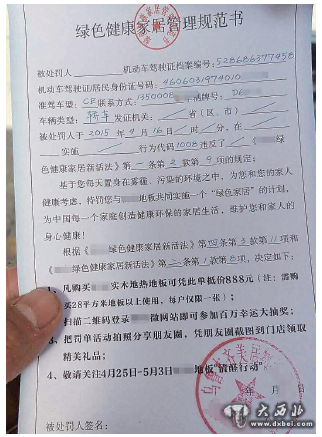 绿色健康家居管理规范书
被处罚人 机动车驾驶证档案编号:528686377458
机动车驾驶证/居民身份证号码:4606031974010
准驾车型:CF联系方式:1350008 车牌号:D6
车辆类型:轿车发证机关: 省(区、市)
被处罚人于2015年4月16日 时 分,在
实施 行为代码1008违反了《 绿
色健康家居新活法》第一条第2款第9项的规定;
基于您每天置身在雾霾、污染的环境之中,为您和您的家人
健康考虑,特罚您与 地板共同实施一个“绿色家居”的计划,
为中国每一个家庭创造健康环保的家居生活,维护您和家人的
身心健康!
根据《 绿色健康家居新活法》第四条第3款第11项和
《 绿色健康家居新活法》第二条1款第8项,决定如下:
1、凡购买 实木地热地板可凭此单抵价888元(注:需购
买28平方米地板以上使用,每户仅限一张);
2、扫描二维码登录 微网站即可参加百万幸运大抽奖;
3、把罚单活动拍照分享朋友圈,凭朋友圈截图到门店领取
精美礼品;
4、敬请关注4月25日-5月3日 地板“清醒行动”
年 月 日
被处罚人签名:
大西北
www.dxbei.com